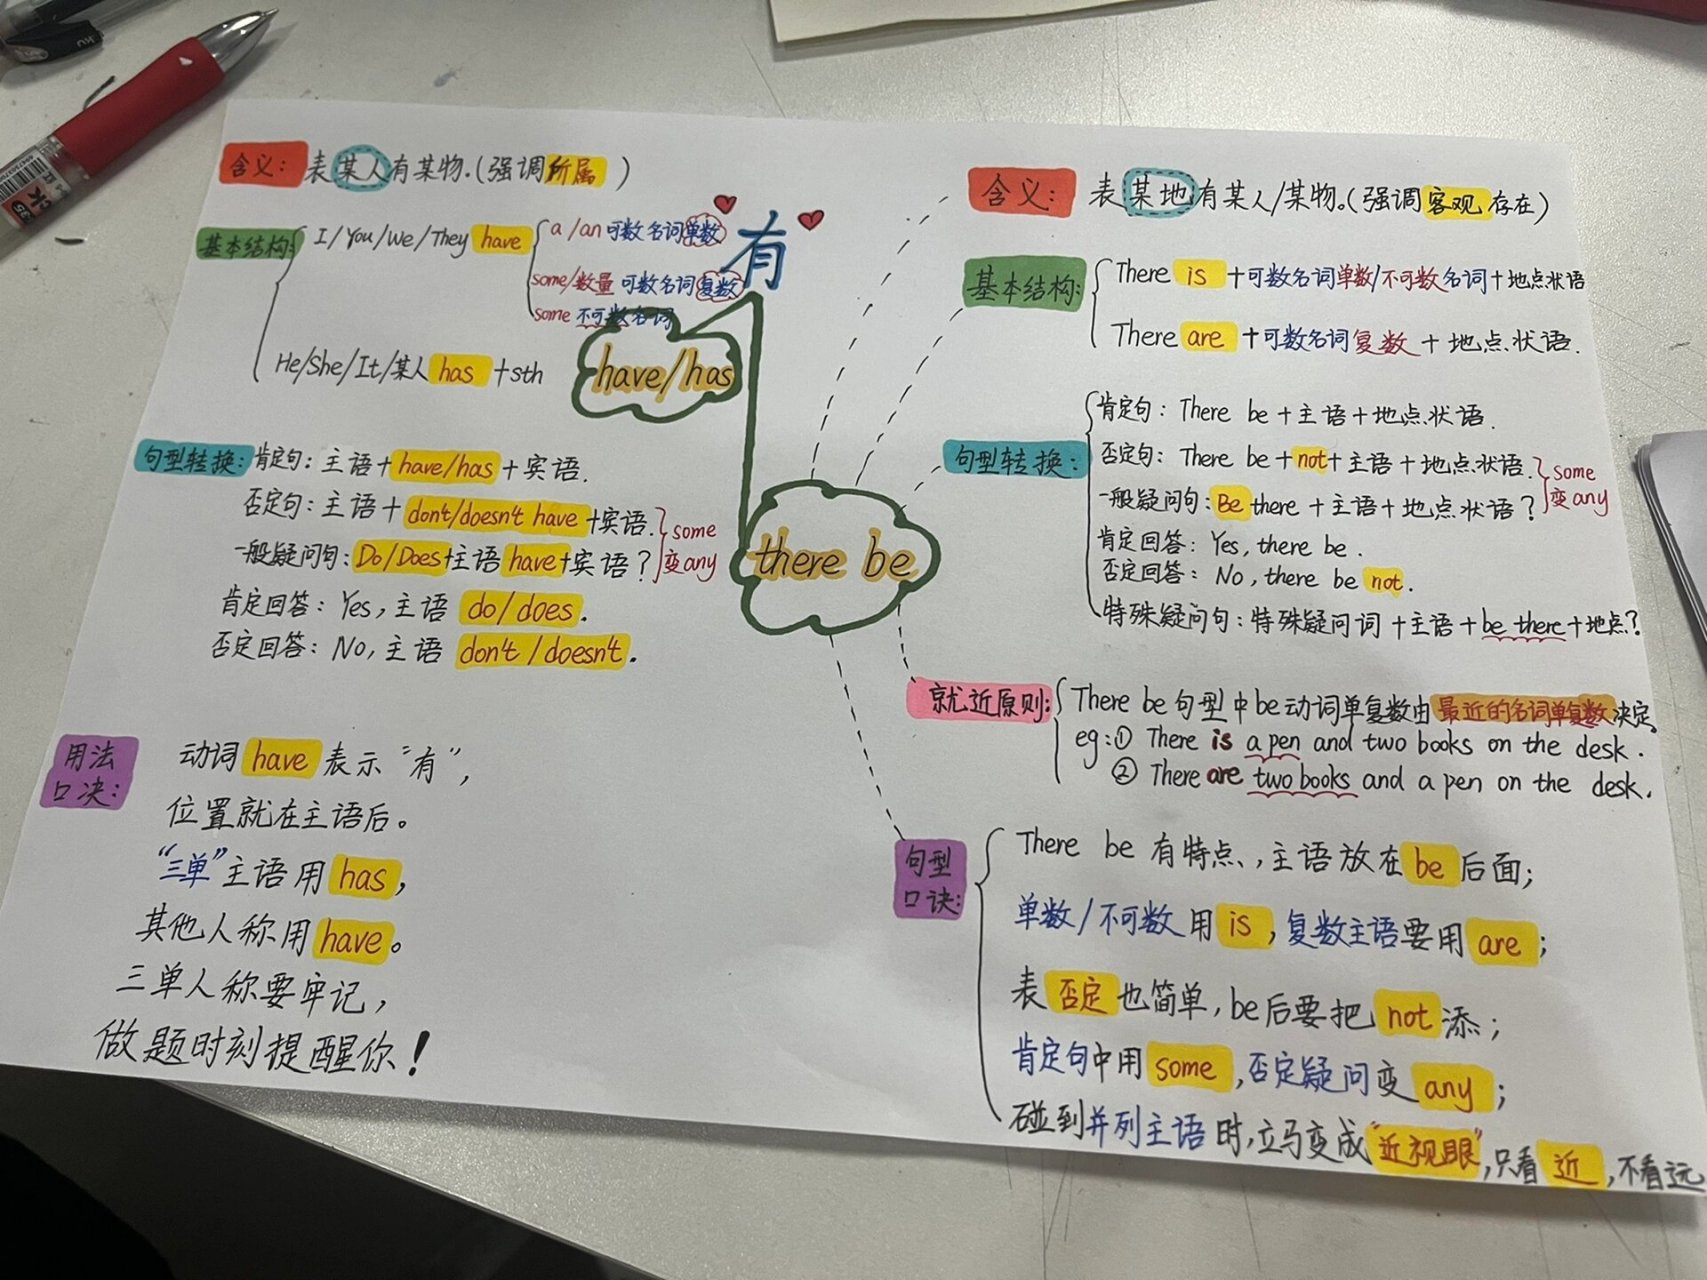 有
have/has
含义：表某人有某物.(强调所属)
基本结构：
I/You/We/They have
a/an可数名词单数
some/数量 可数名词复数
some 不可数名词
He/She/It/某人 has +sth
句型转换：肯定句：主语+have/has+宾语.
否定句：主语+don't/doesn't have+宾语.
一般疑问句：Do/Does+主语 have+宾语？
some
变any
肯定回答：Yes,主语 do/does.
否定回答：No,主语 don't/doesn't.
用法
口决：
动词 have 表示“有”，
位置就在主语后。
“三单”主语用 has，
其他人称用 have。
三单人称要牢记，
做题时刻提醒你！
there be
含义：表某地有某人/某物。(强调客观存在)
基本结构：
There is +可数名词单数/不可数名词+地点状语
There are +可数名词复数+地点状语.
句型转换：
肯定句：There be+主语+地点状语.
否定句：There be+not+主语+地点状语.
一般疑问句：Be there+主语+地点状语？
some
变any
肯定回答：Yes,there be.
否定回答：No,there be not.
特殊疑问句：特殊疑问词+主语+be there+地点？
就近原则：
There be句型中be动词单复数由最近的名词单复数决定.
eg:① There is a pen and two books on the desk.
② There are two books and a pen on the desk.
句型
口诀：
There be 有特点，主语放在be后面；
单数/不可数用is，复数主语要用are；
表否定也简单，be后要把not添；
肯定句中用some，否定疑问变any；
碰到并列主语时，立马变成“近视眼”，只看近，不看远